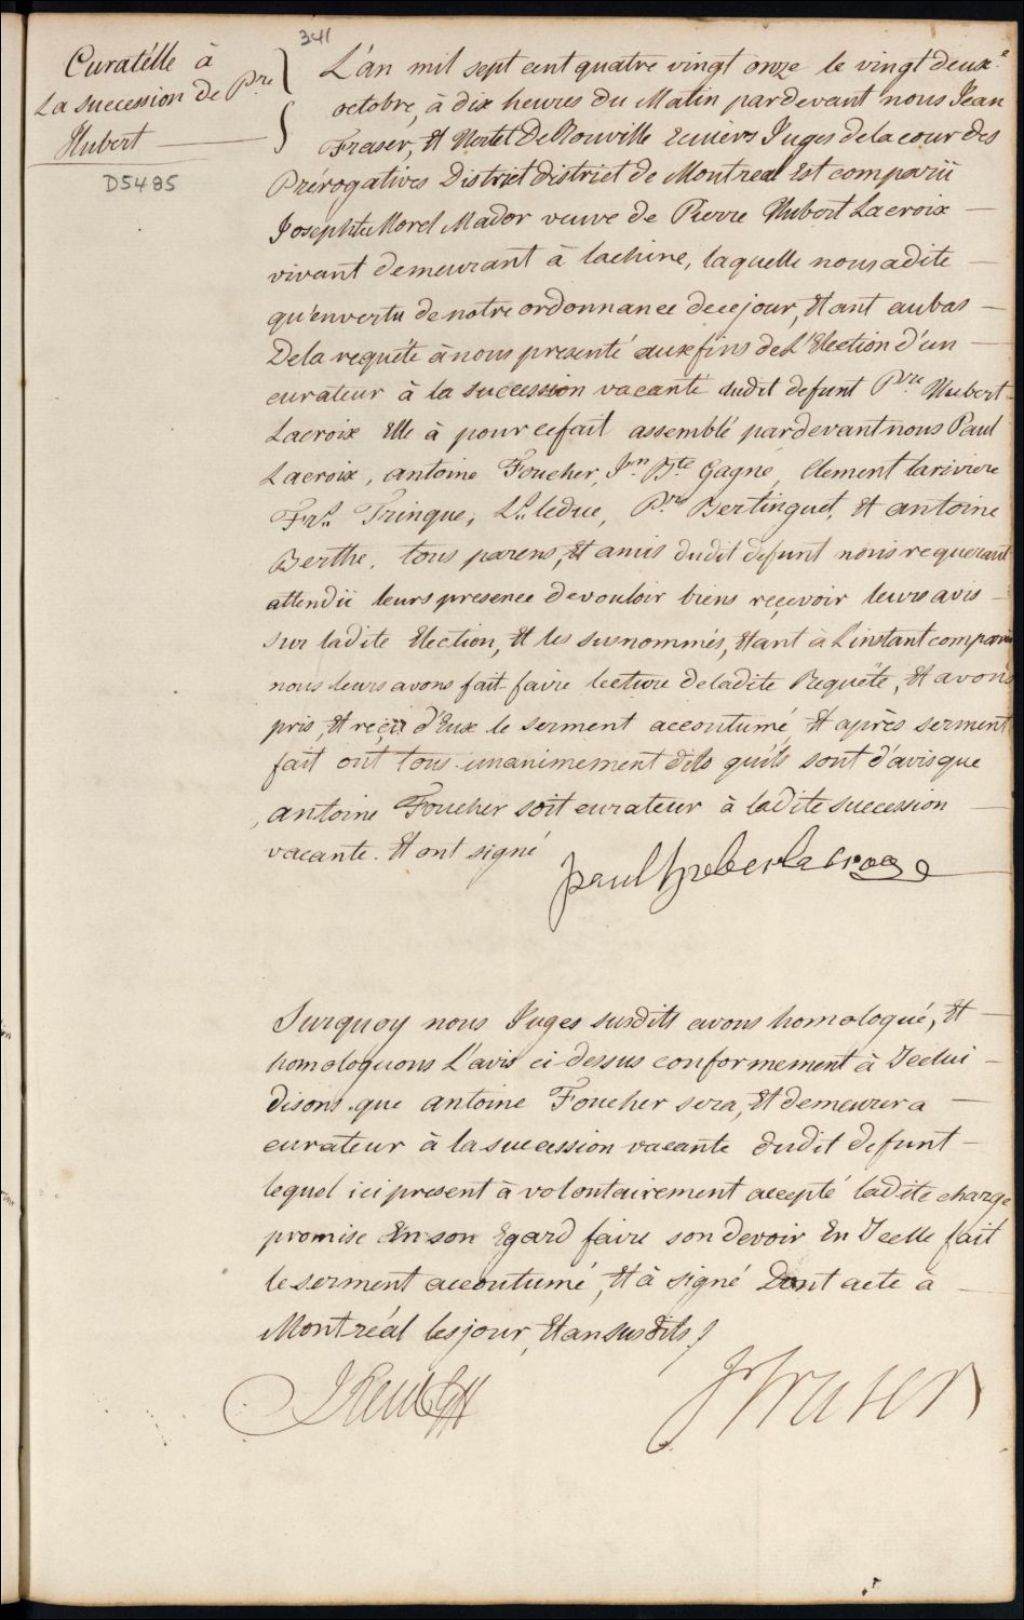 341
Curatélle à
La succession de Pre
Hubert
D5485
L'an mil sept cent quatre vingt onze le vingt deuxe
octobre, à dix heures du Matin pardevant nous Jean
Fraser, Et Hertel DeRouville Ecuiers Juges de la cour des
Prérogatives District district de Montreal Est comparüe
Josephte Morel Mador veuve de Pierre Hubert Lacroix
vivant demeurant à lachine, laquelle nous a dite
qu'en vertu de notre ordonnance de ce jour, Etant au bas
De la requéte à nous presenté aux fins de L'Election d'un
curateur à la succession vacante dudit defunt Pre Hubert
Lacroix Elle à pour ce fait assemblé pardevant nous Paul
Lacroix, antoine Foucher, Jn Bte Gagné, Clement lariviere
Frs Trinque, Ls leduc, Pre Bertinguet, Et antoine
Berthe, tous parens, Et amis dudit defunt nous requerant
attendü leurs presence de vouloir biens reçevoir leurs avis
sur ladite Election, Et les susnommés, Etant à L'instant comparus
nous leurs avons fait faire lecture de ladite Requête, Et avons
pris, Et reçu d'Eux le serment accoutumé, Et après serment
fait ont tous unanimement dits qu'ils sont d'avis que
antoine Foucher soit curateur à ladite succession
vacante. Et ont signé
paul hubert la croix
Surquoy nous Juges susdits avons homologué, Et
homologuons L'avis ci-dessus conformement à Icelui
disons que antoine Foucher sera, Et demeurera
curateur à la succession vacante dudit defunt
lequel ici present à volontairement accepté ladite charge
promise En son Egard faire son devoir En Icelle fait
le serment accoutumé, Et à signé Dont acte à
Montréal les jour, Et an susdits
J Fraser